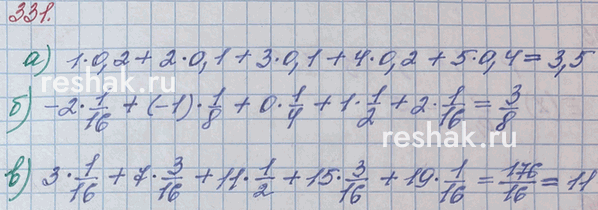 331.
а) 1·0,2 + 2·0,1 + 3·0,1 + 4·0,2 + 5·0,4 = 3,5
reshak.ru
б) -2·1/16 + (-1)·1/8 + 0·1/4 + 1·1/2 + 2·1/16 = 3/8
reshak.ru
в) 3·1/16 + 7·3/16 + 11·1/2 + 15·3/16 + 19·1/16 = 176/16 = 11